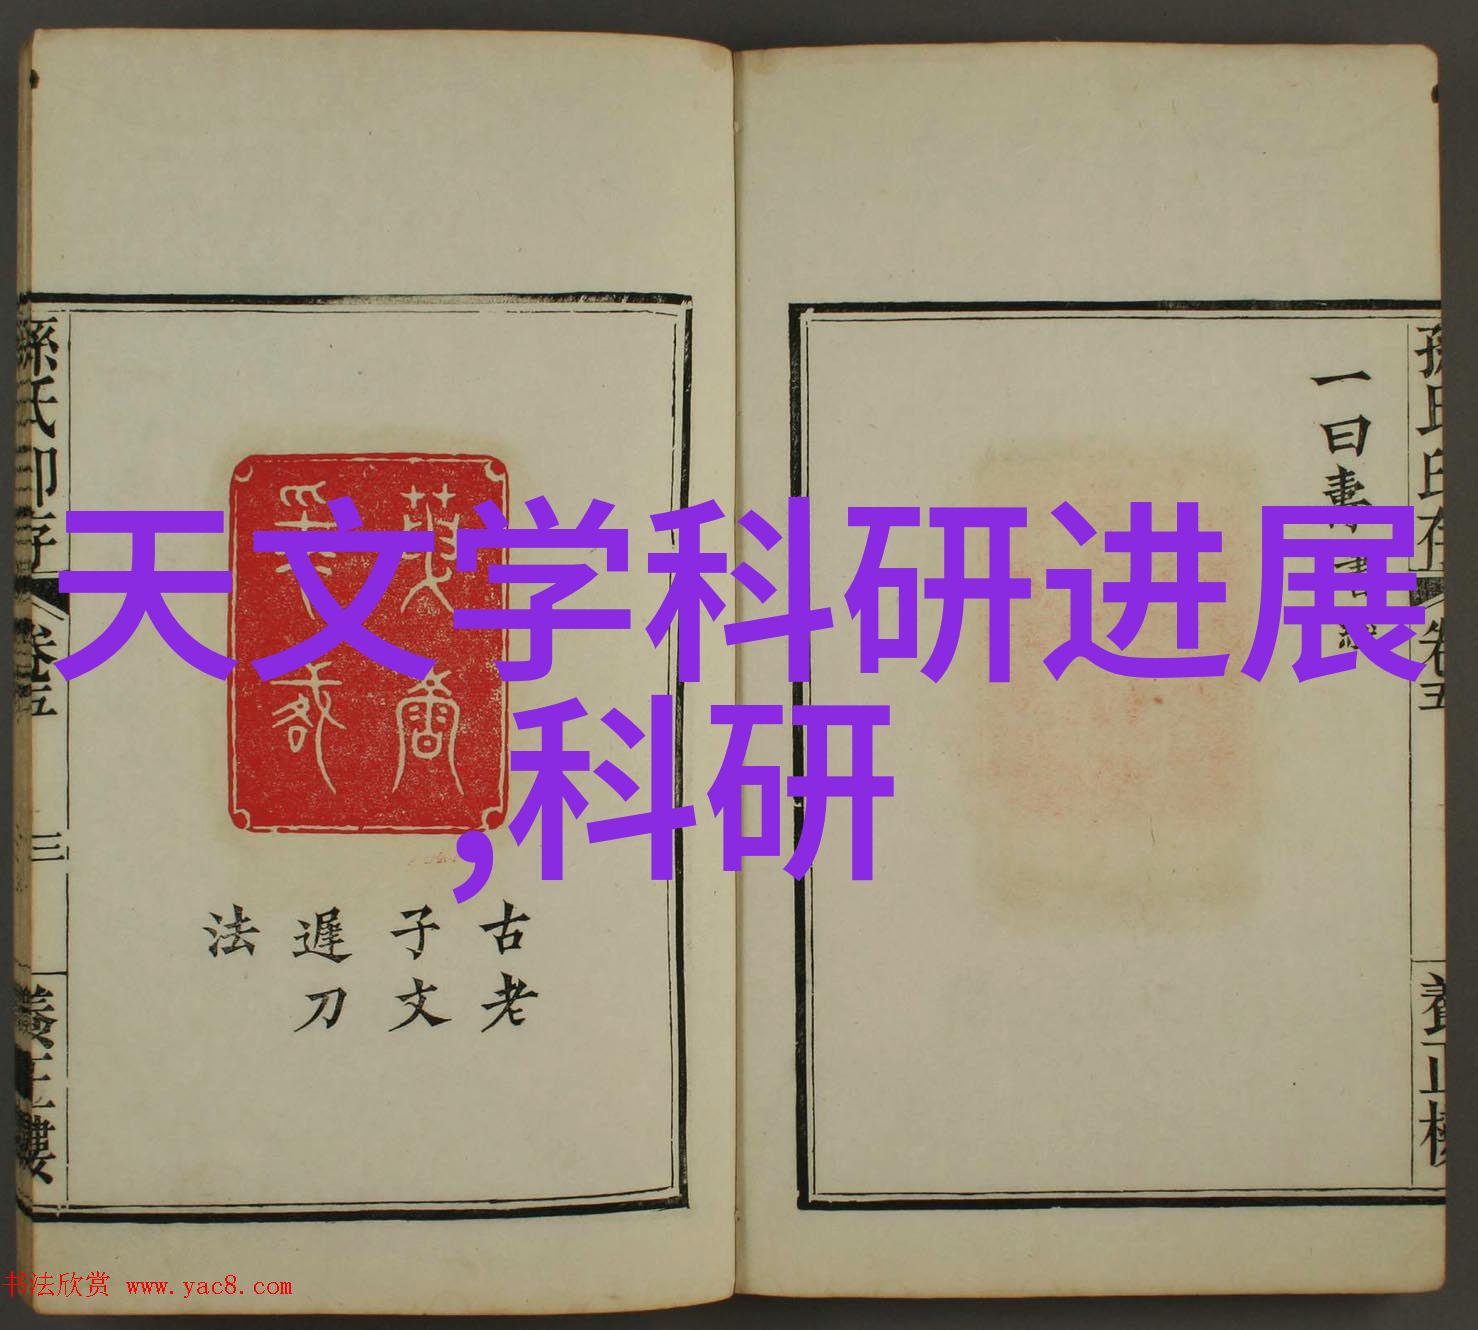 天文学科研进展
,科研
一曰
孫氏印存
卷五
三
養正樓
古老
子文
遲刀
法
孫氏印存
卷五
養正樓
书法欣赏 www.yac8.com